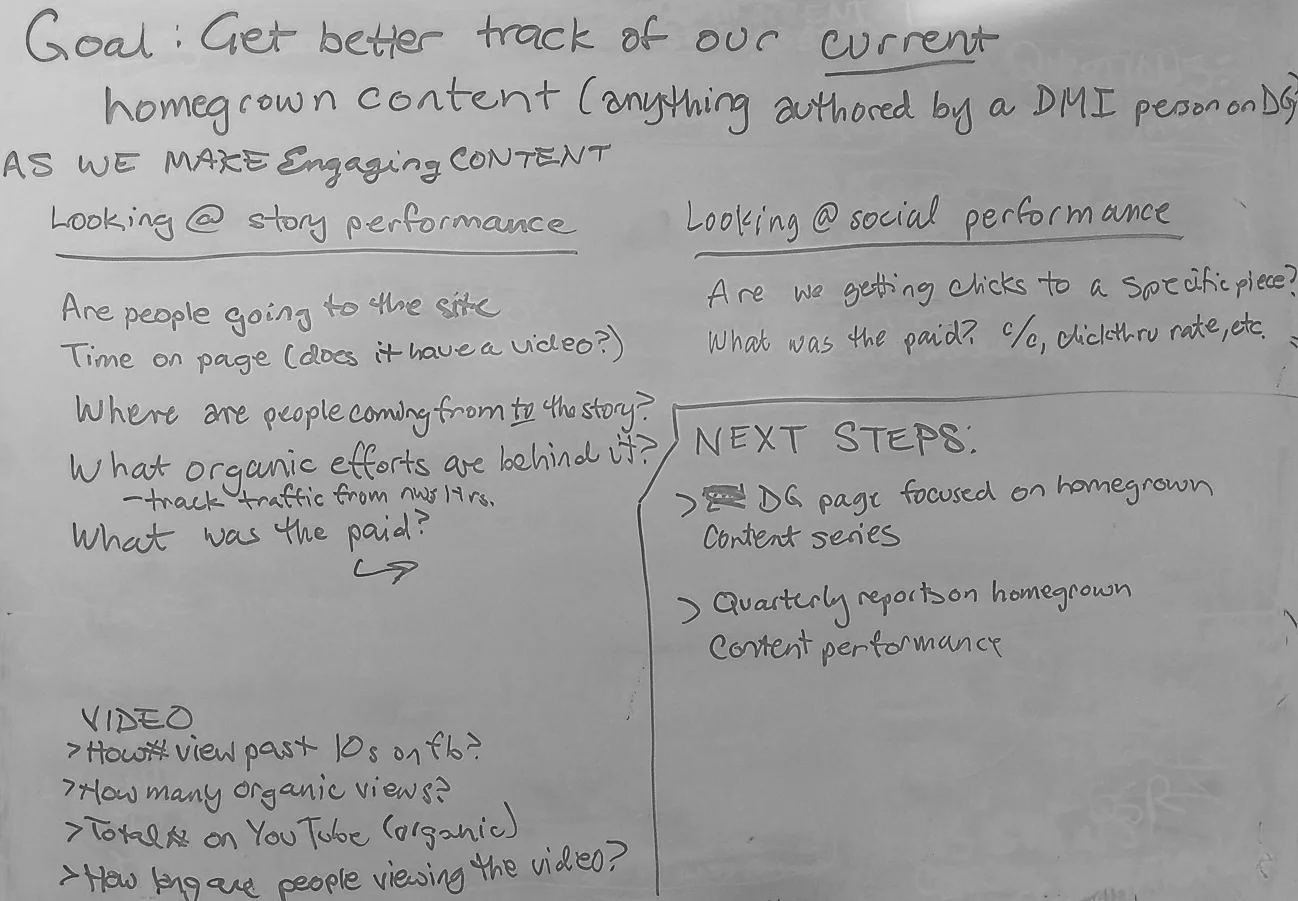 Goal: Get better track of our current
homegrown content (anything authored by a DMI person on DG)
AS WE MAKE Engaging CONTENT
Looking @ story performance
Are people going to the site
Time on page (does it have a video?)
Where are people coming from to the story?
What organic efforts are behind it?
-track traffic from nwsltrs.
What was the paid?
VIDEO
>How # view past 10s on fb?
>How many organic views?
>Total # on YouTube (organic)
>How long are people viewing the video?
Looking @ social performance
Are we getting clicks to a specific piece?
What was the paid? c/c, clickthru rate, etc.
NEXT STEPS:
> DG page focused on homegrown
content series
> Quarterly reports on homegrown
content performance